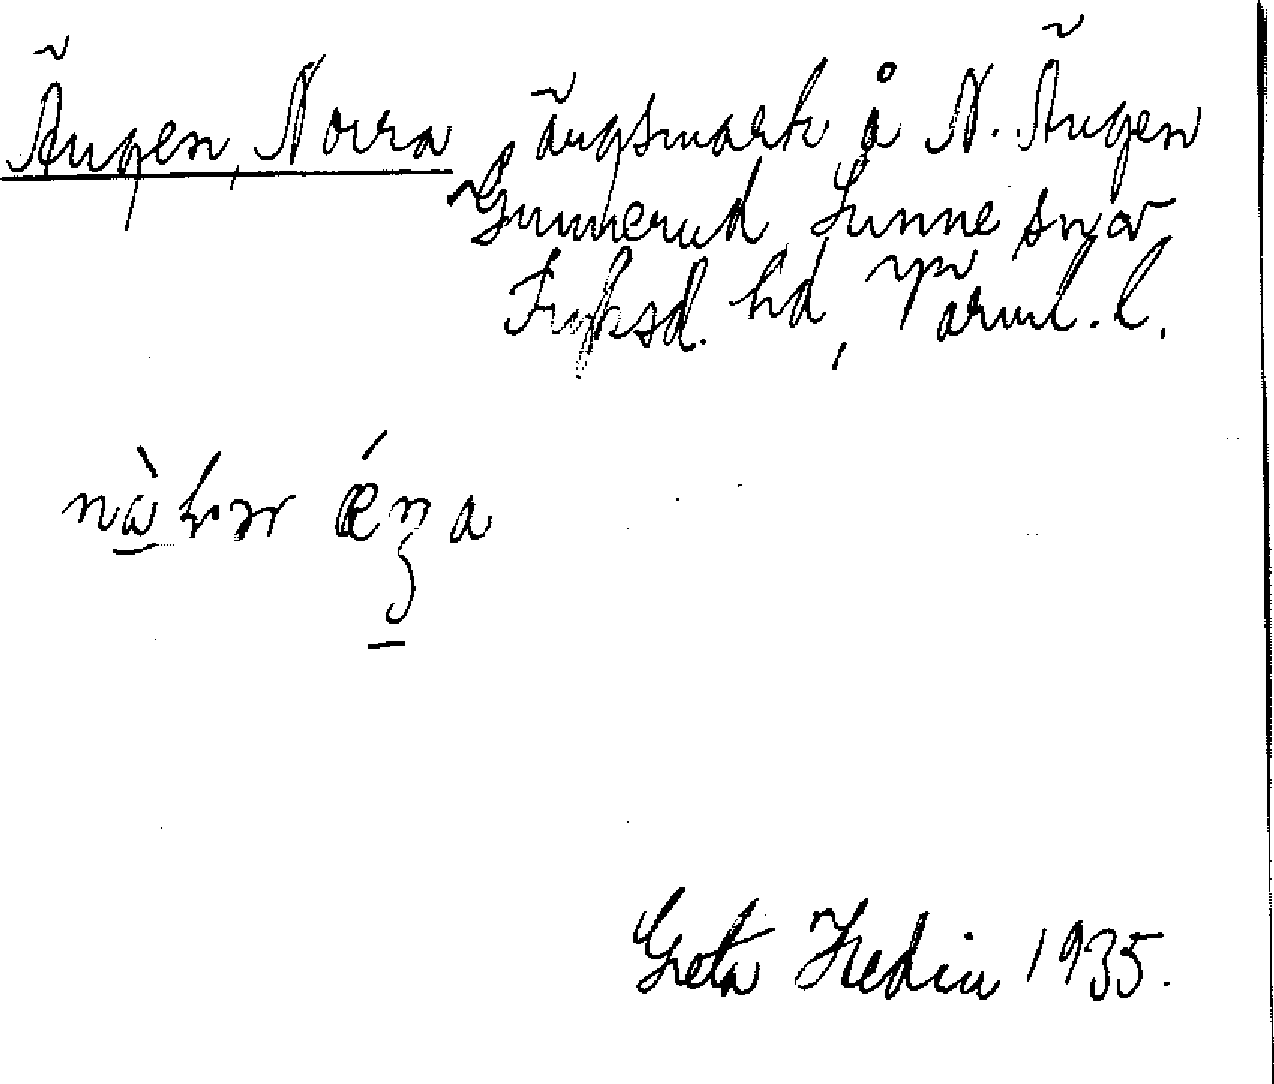 Ängen, Norra ängsmark å N. Ängen
Gunnerud Sunne snr
Fryksd. hd, Värml. l.
Greta Hedin 1935.